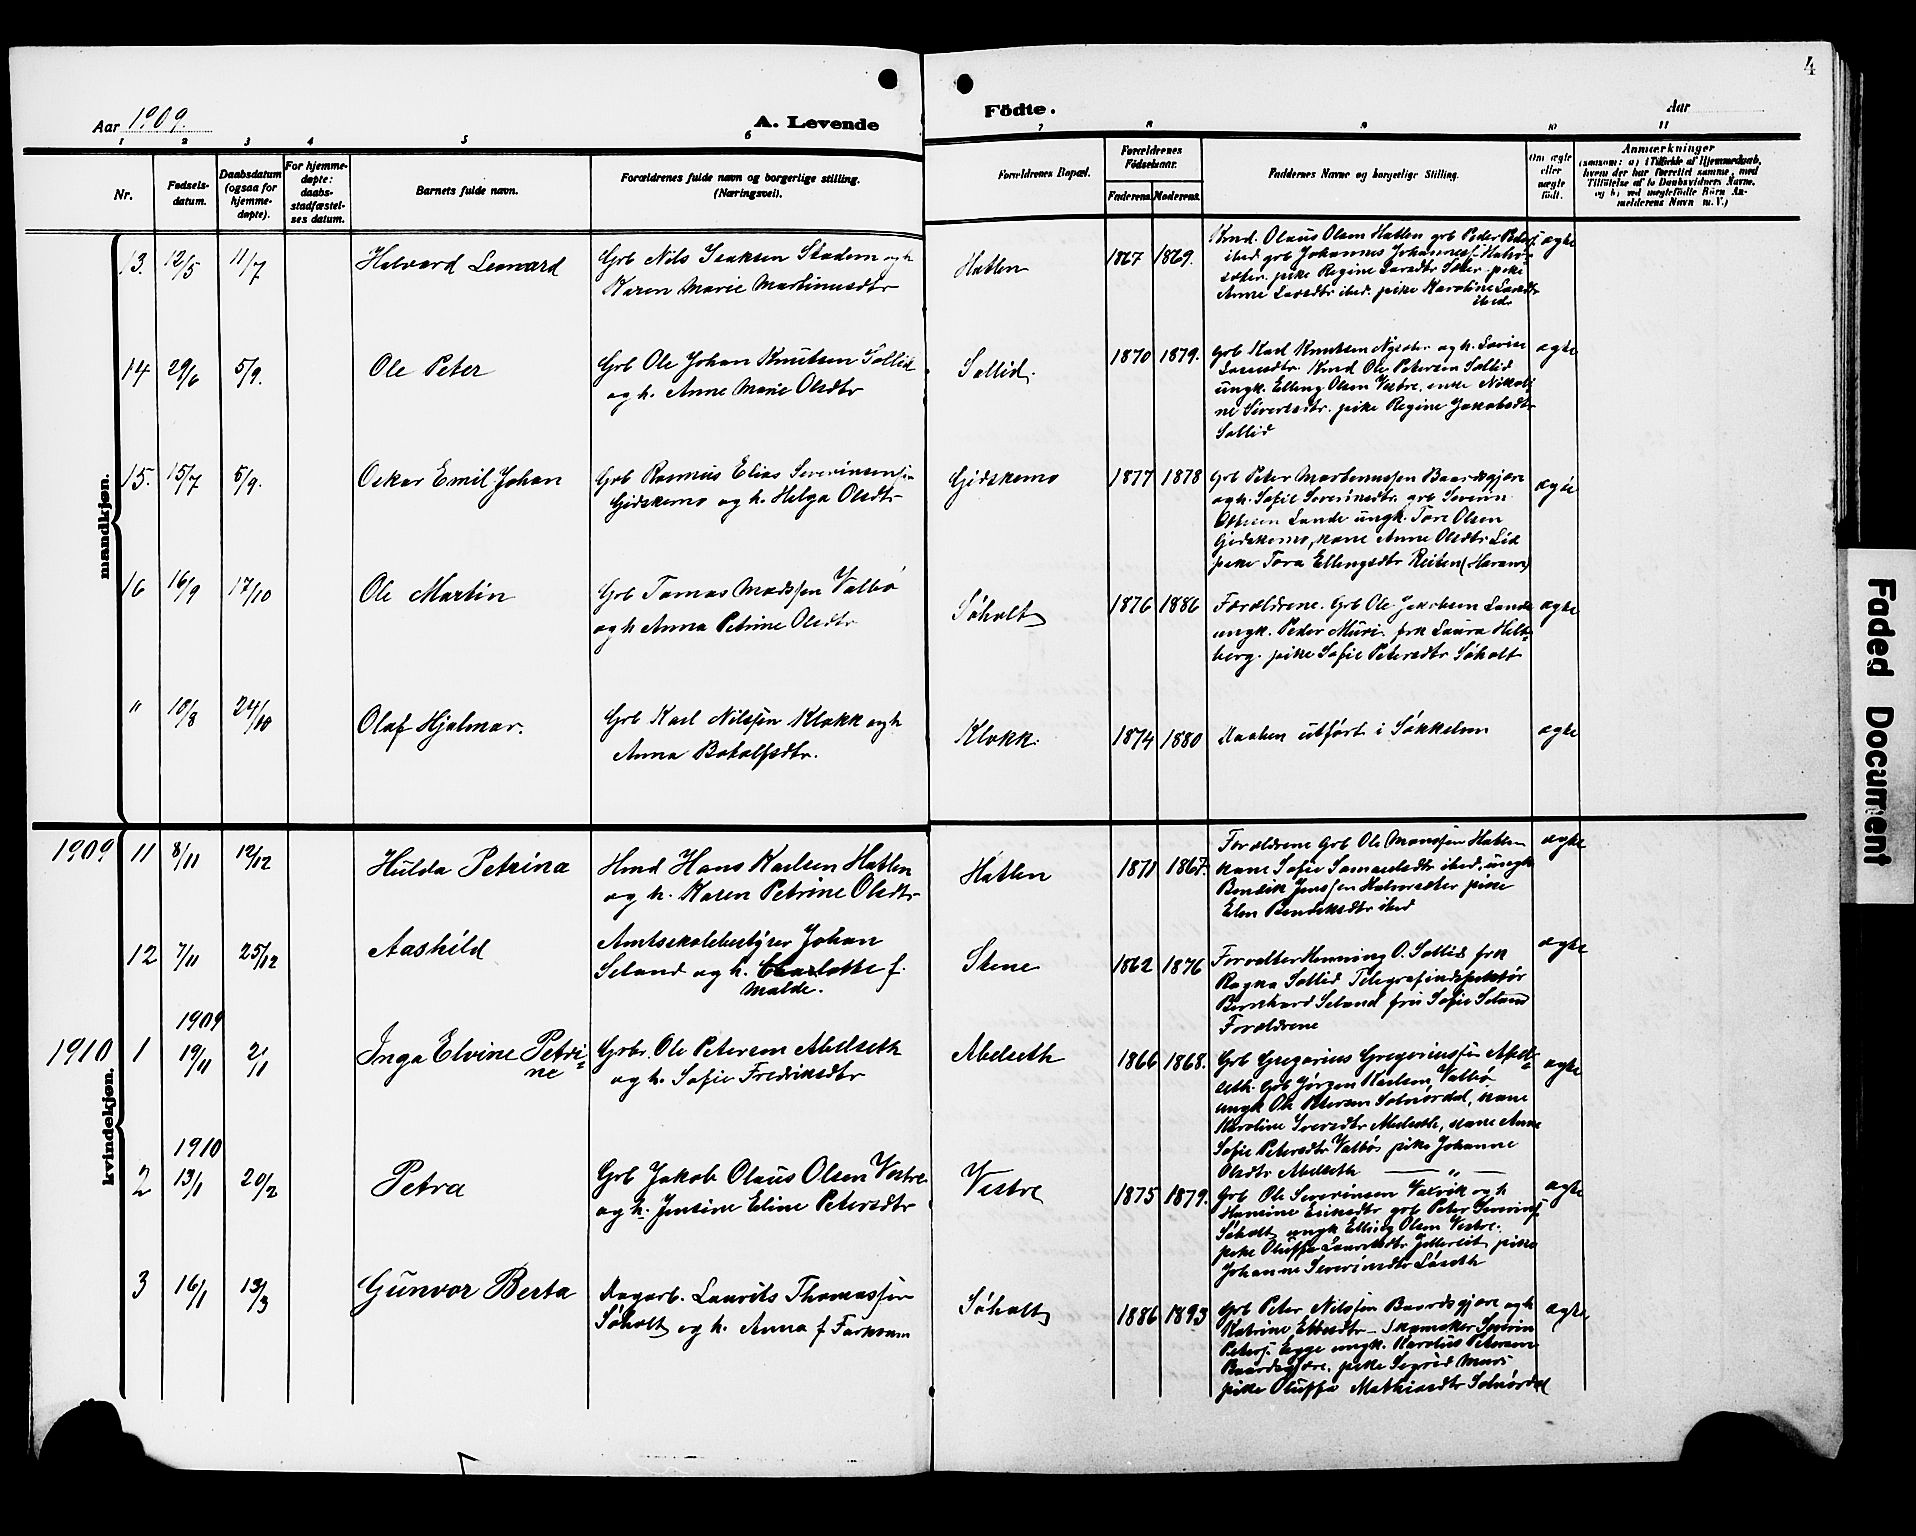 4
Aar 1909.
A. Levende
Födte.
Aar
1 2 3 4 5 6 7 8 9 10 11
Nr.
Fødsels-
datum.
Daabsdatum
(ogsaa for
hjemme-
døpte).
For hjemme-
døpte:
daabs-
stadfæstel-
ses datum.
Barnets fulde navn.
Forældrenes fulde navn og borgerlige stilling.
(Næringsvei).
Forældrenes Bopæl.
Forældrenes
Fødselsaar.
Faderens. Moderens.
Faddernes Navne og borgerlige Stilling.
Om ægte
eller
uægte
født.
Anmærkninger
(saasom: a) i Tilfælde af Hjemmedaab,
hvem der har forrettet samme, med
Tilføielse af to Daabsvidners Navne,
og b) ved uægtefødte Børn An-
melderens Navn m. V.)
mandkjøn.
13. 12/5 11/7 Halvard Leonard
Grb Nils Isaksen Stadem og h
Karen Marie Martinusdtr
Hatlen 1867 1869.
Kmd. Olaus Olsen Hatlen grb Peder Peders.
ibed grb Johannes Johannesf. Halvor-
sæter. pike Regine Larsdtr Sæter. pike
Anne Larsdtr ibed. pike Karoline Larsdtr
ibed.
ægte
14 29/6 5/9. Ole Peter
Grb Ole Johan Knutsen Sollid
og h. Anne Marie Olsdtr
Sollid. 1870 1879.
Grb Karl Knutsen Nysæter og h. Lovise
Larsdtr. Kmd Ole Petersen Sollid
ungk. Elling Olsen Vestre. enke Nikoli-
ne Sivertsdtr. pike Regine Jakobsdtr
Sollid
ægte
15. 15/7 5/9. Oskar Emil Johan
Grb Rasmus Elias Severinsen
Gjidskemo og h. Helga Olsdtr
Gjidskemo 1877 1878
Grb Peter Martinussen Baardsgjære
og h. Sofie Severinsdtr. grb Severin
Ottesen Lande ungk. Tore Olsen
Gjidskemo, kone Anne Olsdtr Lid
pike Tora Ellingsdtr Reiten (Haram)
ægte
16 16/9 17/10 Ole Martin
Grb Tomas Madssen Valbø
og h Anna Petrine Olsdtr
Søholt 1876 1886
Forældrene. Grb Ole Jakobsen Lande
ungk. Peder Muri. frk Laura Helt-
berg. pike Sofie Petersdtr Søholt
ægte
" 10/8 24/10 Olaf Hjalmar.
Grb Karl Nilssen Klokk og h
Anna Botolfsdtr.
Klokk. 1874 1880
Daaben utført i Søkkelven
ægte
kvindekjøn.
1909 11 8/11 12/12 Hulda Petrina
Hmd Hans Karlsen Hatlen
og h. Karen Petrine Olsdtr
Hatlen 1871 1867.
Forældrene Grb Ole Monssen Hatlen
kone Sofie Samuelsdtr ibed, ungk
Bendik Jenssen Halvorsæter pike
Elen Bendiksdtr ibed
ægte
12 7/11 25/12 Aashild
Amtsskolebestyrer Johan
Seland og h. Charlotte f.
Malde.
Skene 1862 1876
Forvalter Henning O. Sollid frk
Ragna Sollid Telegrafinspektør
Bernhard Seland fru Sofie Seland
Forældrene
ægte
1909
1910 1 19/11 2/1 Inga Elvine Petri-
ne
Grbr. Ole Petersen Abelseth
og h. Sofie Fredriksdtr
Abelseth 1866 1868.
Grb Gregorius Gregoriussen Apel-
seth. Grb Jørgen Karlsen Valbø
ungk Ole Petersen Solnørdal, kone
Karoline Iversdtr Abelseth, kone Anne
Sofie Petersdtr Valbø, pike Johanne
Olsdtr Abelseth — " —
ægte
1910
2 13/1 20/2 Petra
Grb Jakob Olaus Olsen Vestre
og h. Jensine Eline Petersdtr
Vestre 1875 1879.
Grb Ole Severinsen Vaksvik og h
Hansine Eriksdtr grb Peter Severins.
Søholt ungk Elling Olsen Vestre.
pike Oluffa Lauritsdtr Jelleeit, pike
Johanne Severinsdtr Landth
ægte
3 16/1 13/3 Gunvor Berta
Dagarb. Laurits Thomassen
Søholt og h. Anna f Farksum
Søholt 1886 1893
Grb Peter Nilssen Baardsgjære og h
Katrine Ellisdtr — Skomaker Severin
Peters. Egge ungk. Karolus Petersen
Baardsgjære, pike Sigrid Muri
pike Oluffa Mathiasdtr Solnørdal
ægte
Faded Document